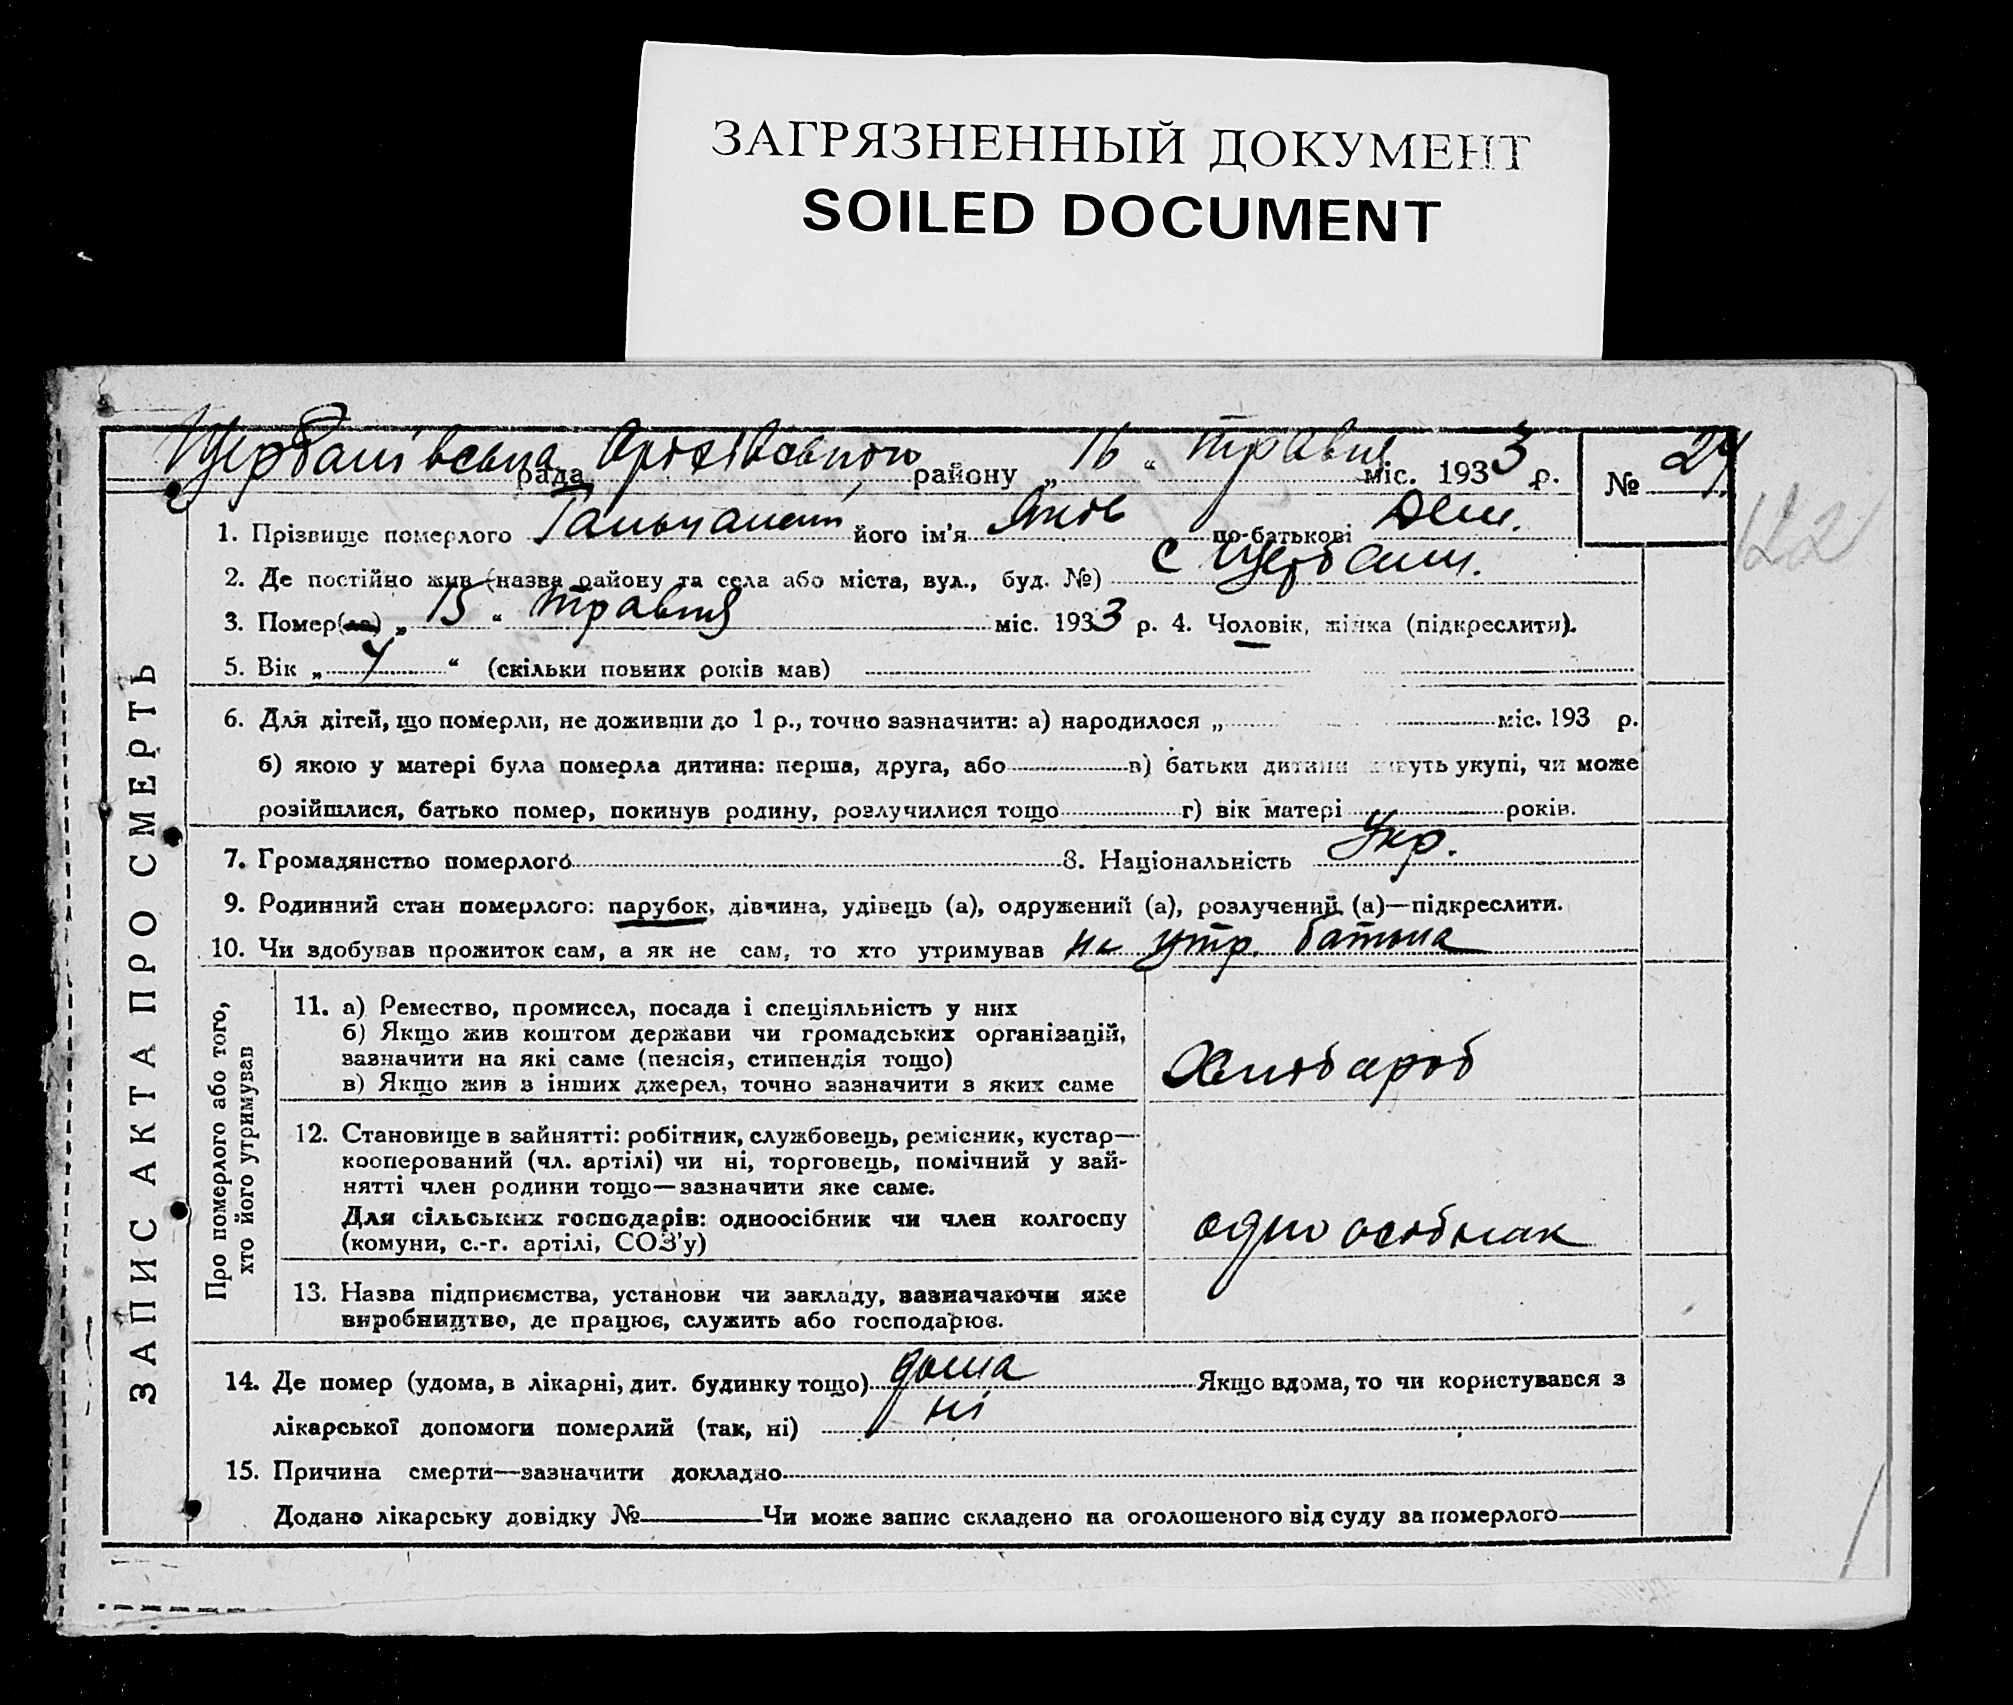 ЗАГРЯЗНЕННЫЙ ДОКУМЕНТ
SOILED DOCUMENT
Щербанівська рада районy „ 16 “ травня міс. 1933 р. № 24
122
ЗАПИС АКТА ПРО СМЕРТЬ
1. Прізвище померлого його ім'я Яків по-батькові Дем.
2. Де постійно жив (назва району та села або міста, вул., буд. №) с Щербани.
3. Помер(ла) „ 15 “ травня міс. 1933 р. 4. Чоловік, жінка (підкреслити).
5. Вік „ 4 “ (скільки повних років мав)
6. Для дітей, що померли, не доживши до 1 р., точно зазначити: а) народилося „ міс. 193 р.
б) якою у матері була померла дитина: перша, друга, або в) батьки дитини живуть укупі, чи може
розійшлися, батько помер, покинув родину, розлучилися тощо г) вік матері років.
7. Громадянство померлого 8. Національність Укр.
9. Родинний стан померлого: парубок, дівчина, удівець (а), одружений (а), розлучений (а)—підкреслити.
10. Чи здобував прожиток сам, а як не сам, то хто утримував на утр. батька
Про померлого або того,
хто його утримував
11. а) Ремество, промисел, посада і спеціяльність у них
б) Якщо жив коштом держави чи громадських організацій,
зазначити на які саме (пенсія, стипендія тощо)
в) Якщо жив з інших джерел, точно зазначити з яких саме
Хлібароб
12. Становище в зайнятті: робітник, службовець, ремісник, кустар—
кооперований (чл. артілі) чи ні, торговець, помічний у зай-
нятті член родини тощо—зазначити яке саме.
Для сільських господарів: одноосібник чи член колгоспу
(комуни, с.-г. артілі, СОЗ'у)
одноосібник
13. Назва підприємства, установи чи закладу, зазначаючи яке
виробництво, де працює, служить або господарює.
14. Де помер (удома, в лікарні, дит. будинку тощо) дома Якщо вдома, то чи користувався з
лікарської допомоги померлий (так, ні) ні
15. Причина смерти—зазначити докладно
Додано лікарську довідку № Чи може запис складено на оголошеного від суду за померлого